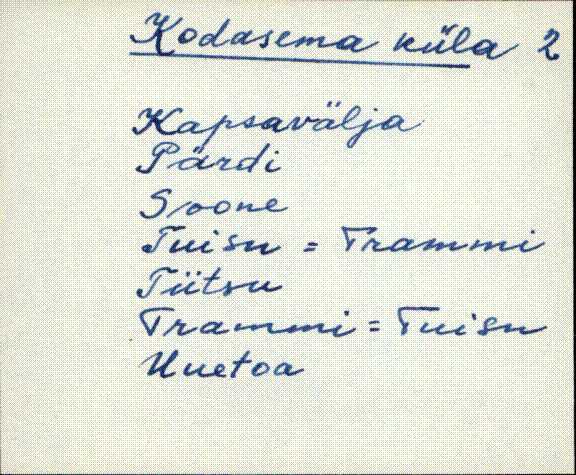 Kodasema küla 2
Kapsavälja
Pärdi
Soone
Tuisu = Trammi
Tiitsu
Trammi = Tuisu
Uuetoa